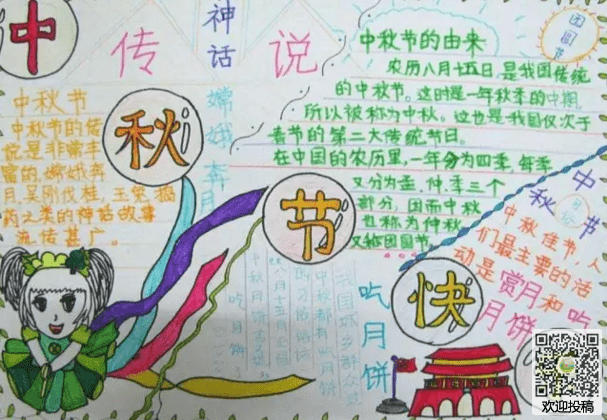 中
秋
节
快
传
说
神话
嫦娥奔月
中秋节
中秋节的传
说是非常丰
富的,嫦娥奔
月,吴刚伐桂,玉兔捣
药之类的神话故事
流传甚广。
中秋节的由来
农历八月十五日,是我国传统
的中秋节。这时是一年秋季的中期,
所以被称为中秋。这也是我国仅次于
春节的第二大传统节日。
在中国的农历里,一年分为四季,每季
又分为孟、仲、季三个
部分,因而中秋
也称为仲秋
又称团圆节
团圆节
中秋节
中秋佳节,人
们最主要的活
动是赏月和吃
月饼
吃月饼
我国城乡群众过
中秋都有吃月饼
欢迎投稿